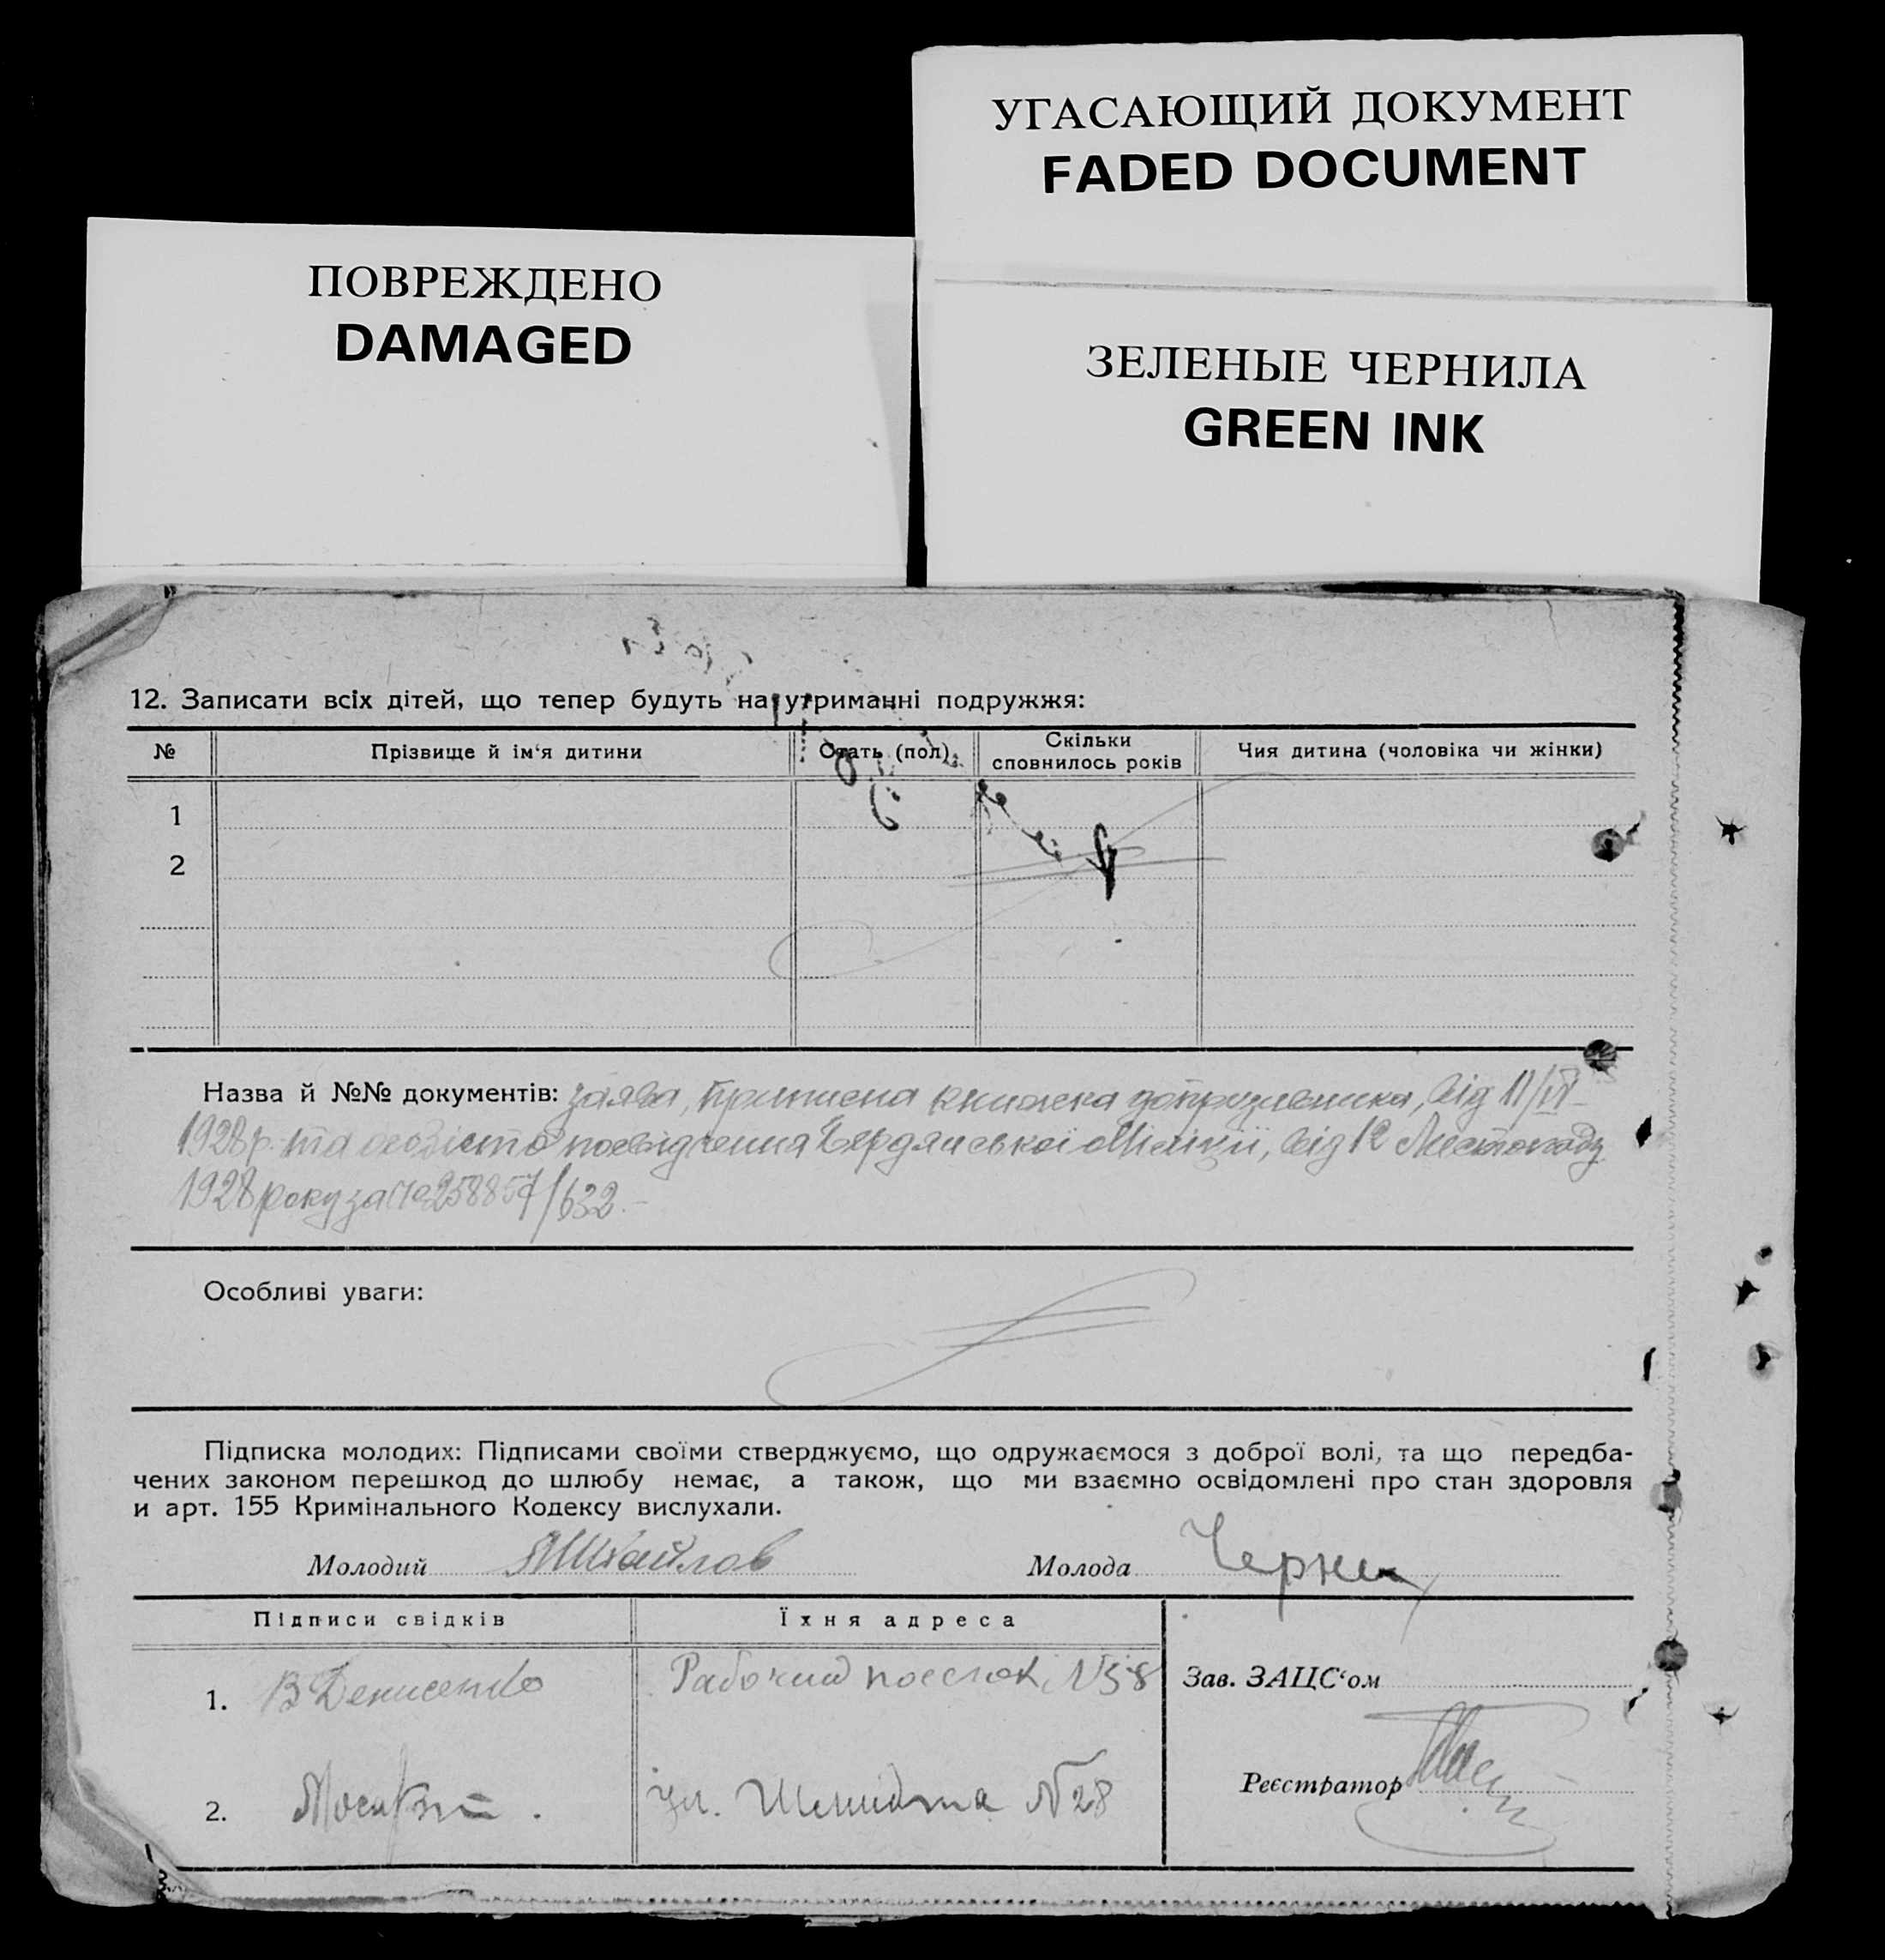 УГАСАЮЩИЙ ДОКУМЕНТ
FADED DOCUMENT
ПОВРЕЖДЕНО
DAMAGED
ЗЕЛЕНЫЕ ЧЕРНИЛА
GREEN INK
12. Записати всіх дітей, що тепер будуть на утриманні подружжя:
№ Прізвище й ім‘я дитини Стать (пол) Скільки сповнилось років Чия дитина (чоловіка чи жінки)
1
2
Назва й №№ документів: заява, приписна книжка допризивника, від 11/VI
1928р. та особисте посвідчення Бердянської Міліції, від 12 Листопаду
1928 року за № 258857/632.-
Особливі уваги:
Підписка молодих: Підписами своїми стверджуємо, що одружаємося з доброї волі, та що передба-
чених законом перешкод до шлюбу немає, а також, що ми взаємно освідомлені про стан здоровля
и арт. 155 Кримінального Кодексу вислухали.
Молодий Михайлов Молода Черне
Підписи свідків Їхня адреса
1. В Денисенко Рабочий поселок, №58 Зав. ЗАЦС‘ом
2. ул. Шмидта №28 Реєстратор